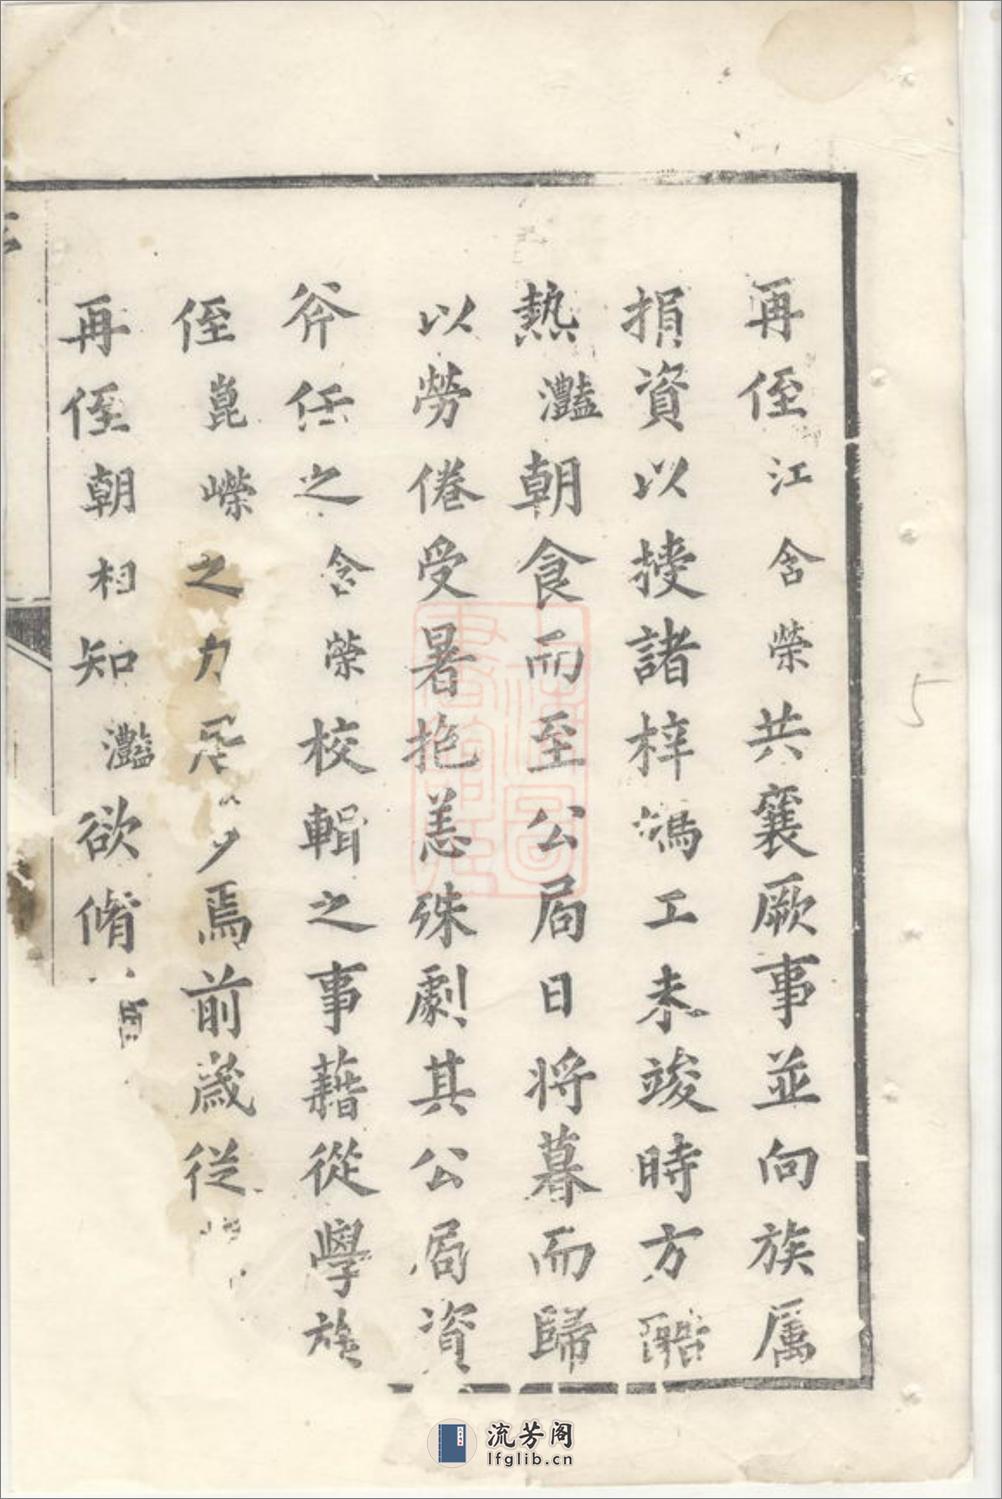 再侄江含榮共襄厥事並向族厲
捐資以㨗諸梓鳩工未竣時方酷
熱灩朝食而至公局日將暮而歸
以勞倦受暑抱恙殊劇其公局資
斧任之含榮校輯之事藉從學族
侄崑嶸之力居多焉前歲從
再侄朝相知灩欲脩
5
流芳阁
lfglib.cn